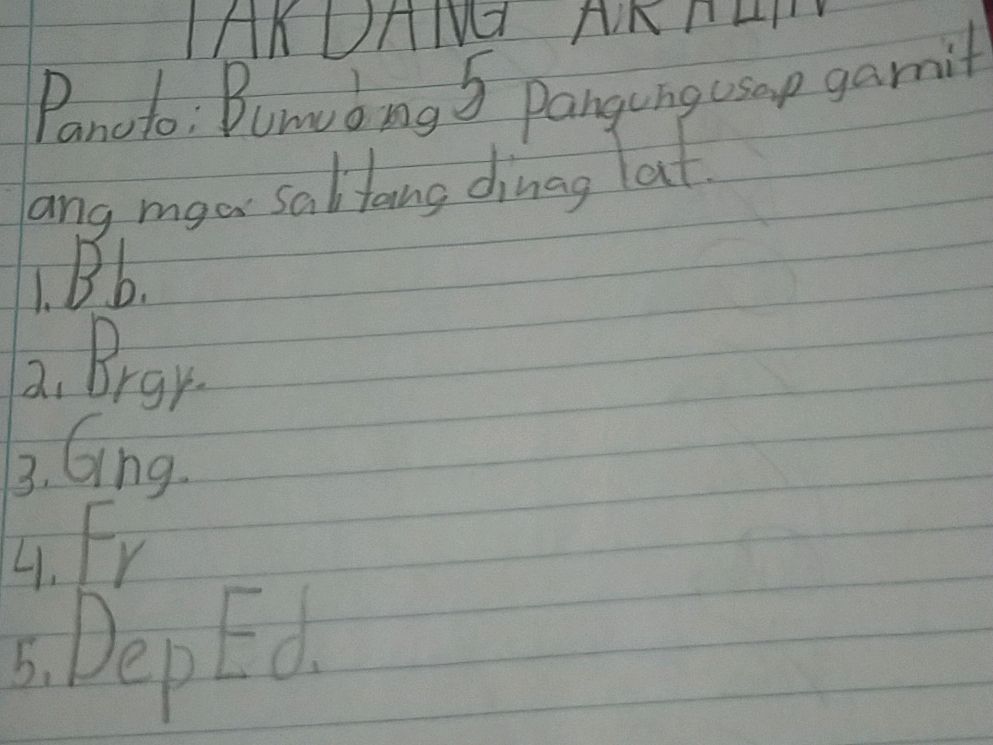 TAKDANG ARALIN
Panuto: Bumuo ng 5 Pangungusap gamit
ang mga salitang dinaglat.
1. Bb.
2. Brgy.
3. Gng.
4. Fr
5. DepEd.